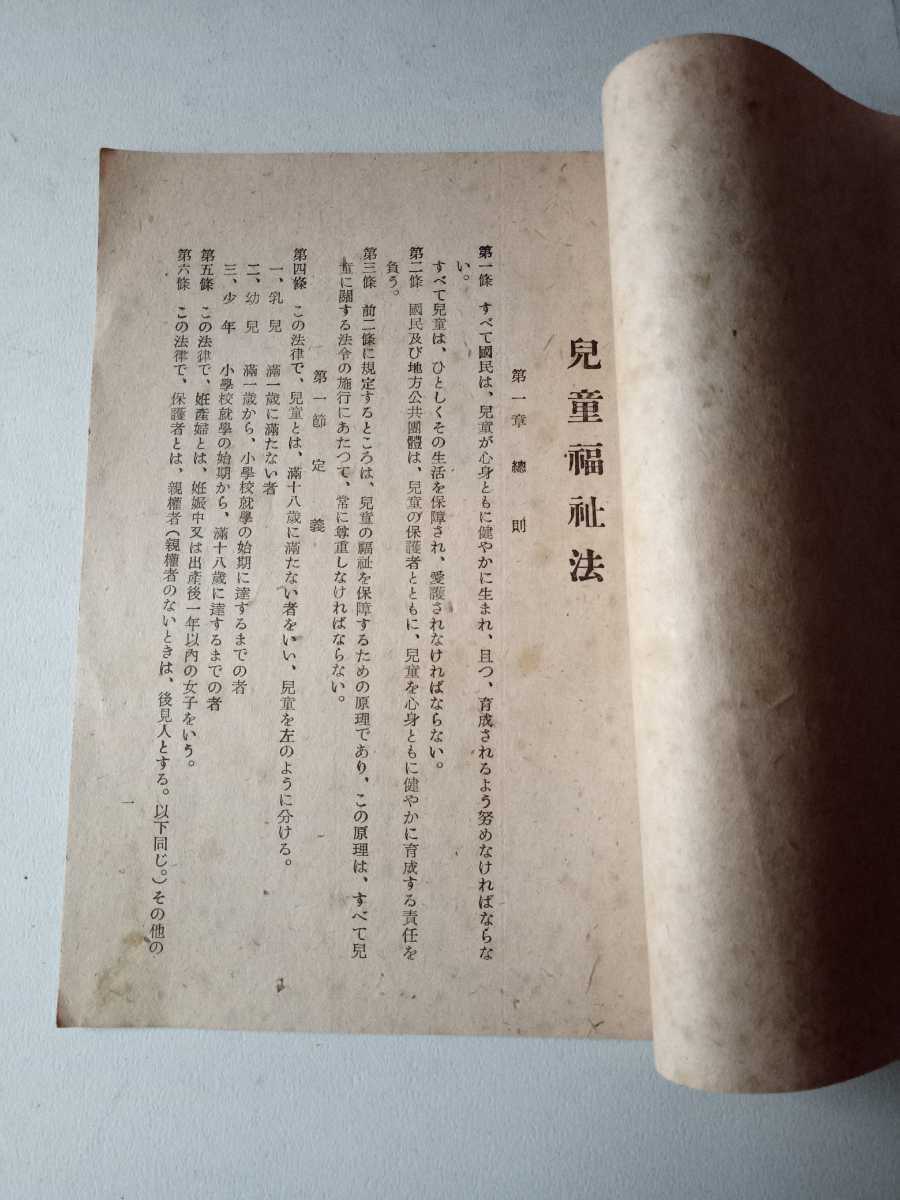 兒童福祉法
第一章 總則
第一條 すべて國民は、兒童が心身ともに健やかに生まれ、且つ、育成されるよう努めなければならな
い。
すべて兒童は、ひとしくその生活を保障され、愛護されなければならない。
第二條 國民及び地方公共團體は、兒童の保護者とともに、兒童を心身ともに健やかに育成する責任を
負う。
第三條 前二條に規定するところは、兒童の福祉を保障するための原理であり、この原理は、すべて兒
童に關する法令の施行にあたつて、常に尊重しなければならない。
第一節 定義
第四條 この法律で、兒童とは、滿十八歲に滿たない者をいい、兒童を左のように分ける。
一、乳兒 滿一歲に滿たない者
二、幼兒 滿一歲から、小學校就學の始期に達するまでの者
三、少年 小學校就學の始期から、滿十八歲に達するまでの者
第五條 この法律で、妊產婦とは、妊娠中又は出產後一年以內の女子をいう。
第六條 この法律で、保護者とは、親權者(親權者のないときは、後見人とする。以下同じ。)その他の
一